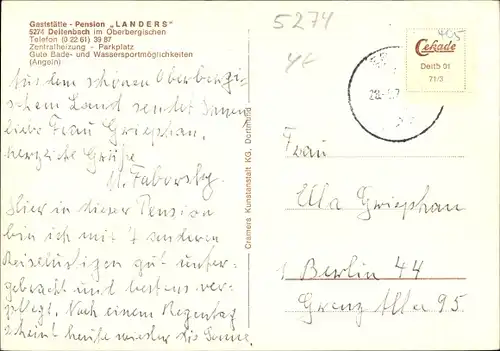 Gaststätte - Pension „LANDERS"
5274 Deitenbach im Oberbergischen
Telefon (0 22 61) 39 87
Zentralheizung - Parkplatz
Gute Bade- und Wassersportmöglichkeiten
(Angeln)
Aus dem schönen Oberbergi-
schem Land sendet Ihnen
liebe Frau Griephan,
herzliche Grüße
M. Faborsky
Hier in dieser Pension
bin ich mit 7 anderen
Reiselustigen gut unter-
gebracht und bestens ver-
pflegt. Nach einem Regentag
scheint heute wieder die Sonne
Cramers Kunstanstalt KG, Dortmund
5274
405
Cekade
Deitb 01
71/3
Frau
Ulla Griephan
1 Berlin 44
Grenz Allee 95